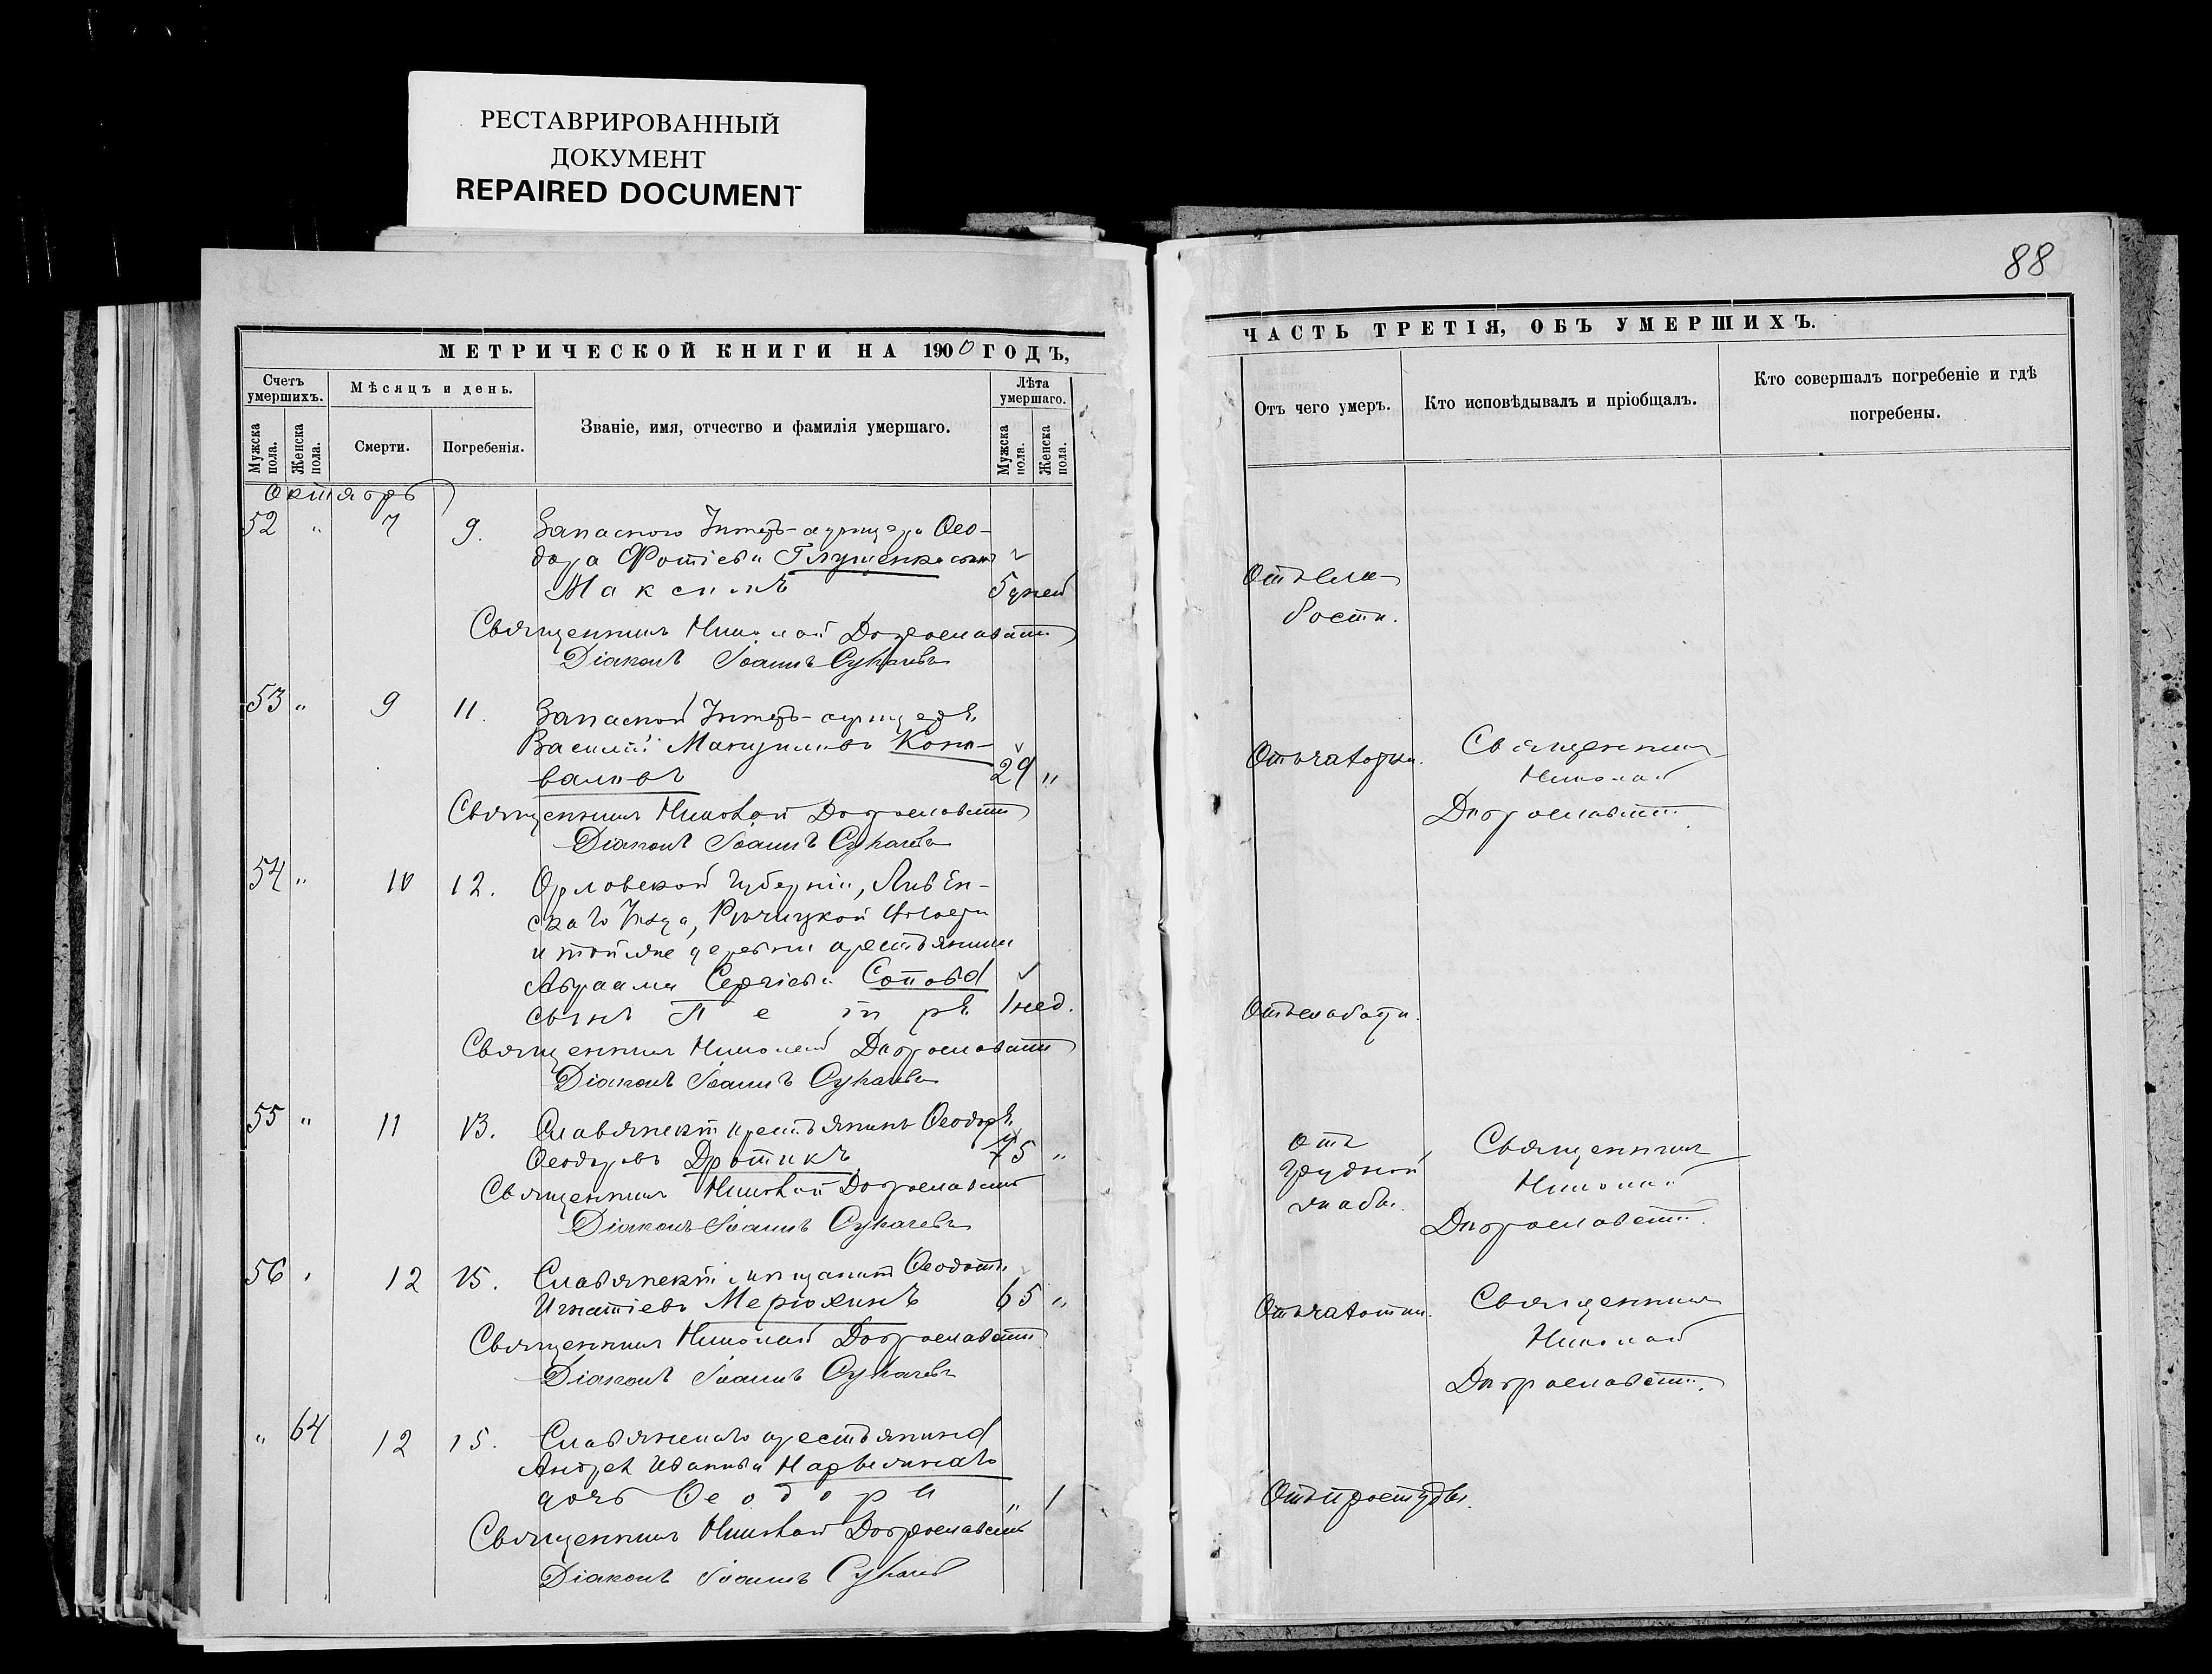 РЕСТАВРИРОВАННЫЙ
ДОКУМЕНТ
REPAIRED DOCUMENT
88
МЕТРИЧЕСКОЙ КНИГИ НА 1900 ГОДЪ,
Счетъ умершихъ.
Мѣсяцъ и день.
Званіе, имя, отчество и фамилія умершаго.
Лѣта умершаго.
Мужска пола.
Женска пола.
Смерти.
Погребенія.
Мужска пола.
Женска пола.
Октябрь
52 " 7 9. Запасного Унтеръ-офицера Ѳео-
дора Фотіева Глущенка сынъ
Максимъ 5 дней
Священникъ Николай Доброславскій
Діаконъ Іоаннъ Сукачевъ
53 " 9 11. Запасной Унтеръ-офицеръ
Василій
валовъ 29 "
Священникъ Николай Доброславскій
Діаконъ Іоаннъ Сукачевъ
54 " 10 12. Орловской губерніи, Ливен-
скаго уѣзда, Рѣчицкой волости
и той же деревни крестьянина
Авраама Сергіева Сопова
сынъ Петръ 1 нед.
Священникъ Николай Доброславскій
Діаконъ Іоаннъ Сукачевъ
55 " 11 13. Славянскій крестьянинъ Ѳеодоръ
Ѳеодоровъ Дротикъ 75 "
Священникъ Николай Доброславскій
Діаконъ Іоаннъ Сукачевъ
56 " 12 15. Славянскій мѣщанинъ Ѳеодотъ
Игнатіевъ Мерюхинъ 65 "
Священникъ Николай Доброславскій
Діаконъ Іоаннъ Сукачевъ
" 64 12 15. Славянскаго крестьянина
Андрея Иванова
дочь Ѳеодора " 1
Священникъ Николай Доброславскій
Діаконъ Іоаннъ Сукачевъ
ЧАСТЬ ТРЕТІЯ, ОБЪ УМЕРШИХЪ.
Отъ чего умеръ.
Кто исповѣдывалъ и пріобщалъ.
Кто совершалъ погребеніе и гдѣ
погребены.
Отъ сла-
бости.
Отъ чахотки.
Священникъ
Николай
Доброславскій.
Отъ слабости.
Отъ
грудной
жабы.
Священникъ
Николай
Доброславскій.
Отъ чахотки.
Священникъ
Николай
Доброславскій.
Отъ простуды.